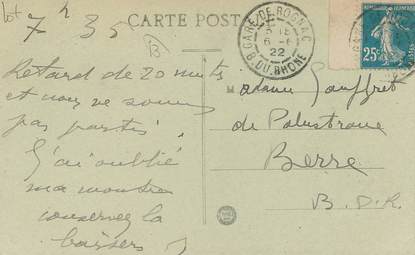 lot
7 h 35
B
CARTE POSTALE
GARE DE ROGNAC
22
B. DU RHONE
25c
Retard de 20 mnts
et nous ne sommes
pas partis
J'ai oublié
ma montre
conservez la
baisers
Madame Jouffret
de Palustrane
Berre
B. D. R.